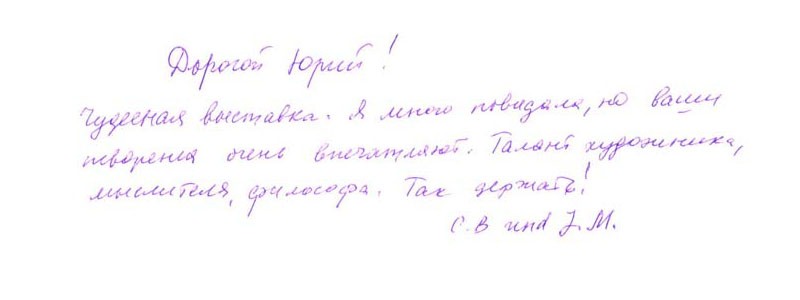 Дорогой Юрий!
Чудесная выставка. Я много повидала, но ваши
творения очень впечатляют. Талант художника,
мыслителя, философа. Так держать!
С.В und J.M.